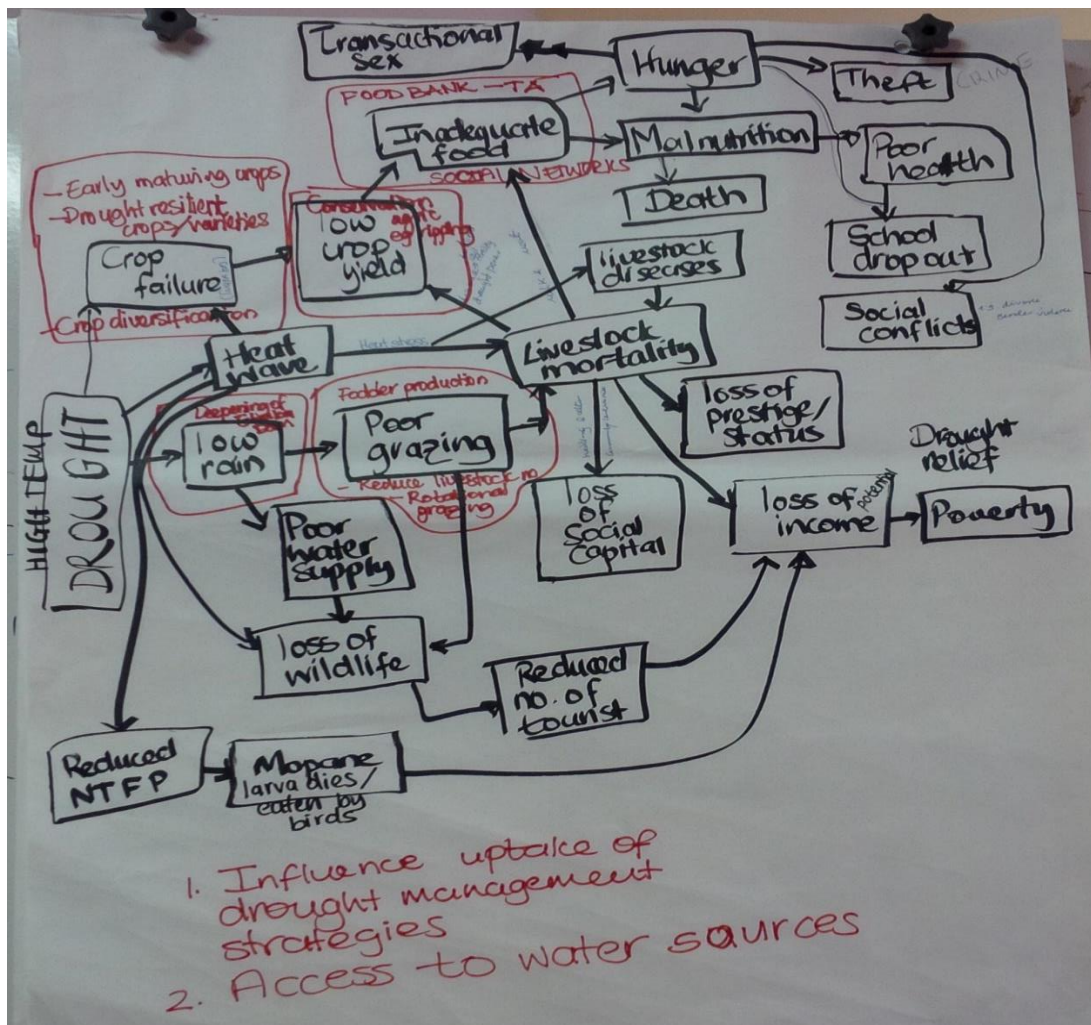 Transactional
sex
Hunger
Theft
CRIME
FOOD BANK – TA
Inadequate
food
SOCIAL NETWORKS
Malnutrition
Poor
health
Death
School
dropout
Social
conflicts
- Early maturing crops
- Drought resilient
crops/varieties
Crop
failure
- Crop diversification
Conservation
agric
eg ripping
low
crop
yield
livestock
diseases
Heat
wave
Heat stress
Livestock
mortality
loss of
prestige/
status
HIGH TEMP
DROUGHT
Deepening of
low
rain
Fodder production
Poor
grazing
- Reduce livestock no.
- Rotational
grazing
Poor
water
supply
loss
of
Social
Capital
loss of
income
potential
Drought
relief
Poverty
loss of
wildlife
Reduced
no. of
tourist
Reduced
NTFP
Mopane
larva dies/
eaten by
birds
1. Influence uptake of
drought management
strategies
2. Access to water sources